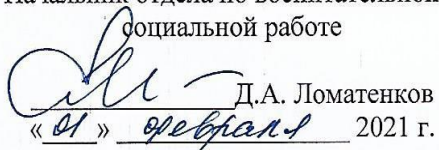 Начальник отдела по воспитательной
социальной работе
Д.А. Ломатенков
«01» февраля 2021 г.